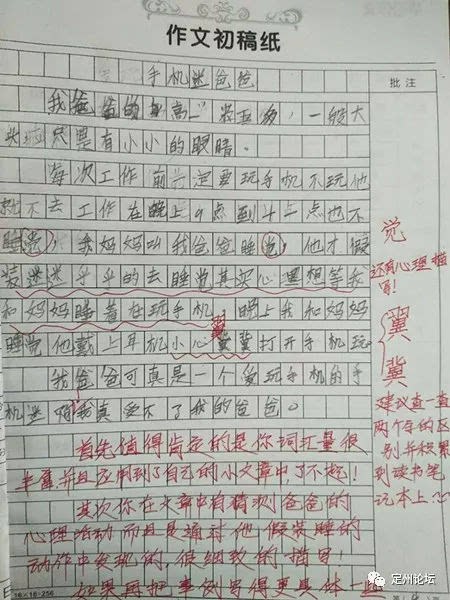 作文初稿纸
批注
手机迷爸爸
我爸爸的身高一米五多，一般大
只是有小小的眼睛。
每次工作前一定要玩手机不玩他
就不去工作在晚上9点到十二点也不
睡觉，我妈妈叫我爸爸睡觉，他才假
装迷迷乎乎的去睡觉其实心里想等我
和妈妈睡着在玩手机。晚上我和妈妈
睡觉他戴上耳机小心冀冀打开手机玩。
翼
我爸爸可真是一个爱玩手机的手
机迷啊我真受不了我的爸爸。
觉
还有心理描
写！
翼
冀
建议查一查
两个字的区
别并积累
到读书笔
记本上
首先值得肯定的是你词汇量很
丰富并且应用到了自己的小文章中了不起！
其次你在文章中有猜测爸爸的
心理活动而且是通过他假装睡的
动作中发现的，很细致的描写！
如果再把事例写得更具体一些
16×16=256
定州论坛